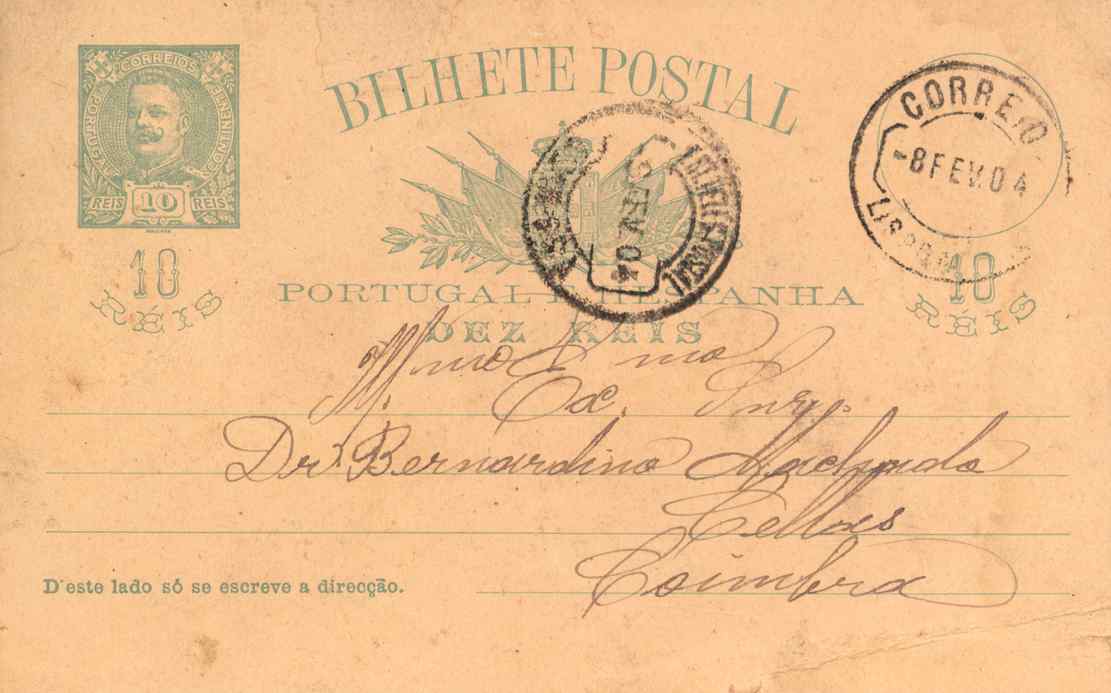 CORREIOS
PORTUGAL CONTINENTE
REIS 10 REIS
10
RÉIS
BILHETE POSTAL
PORTUGAL E HESPANHA
DEZ RÉIS
CORREIO
-8 FEV. 04
LISBOA
10
RÉIS
Illmo Exmo
Ex. Snr.
Dr. Bernardino Machado
Cellas
Coimbra
D'este lado só se escreve a direcção.